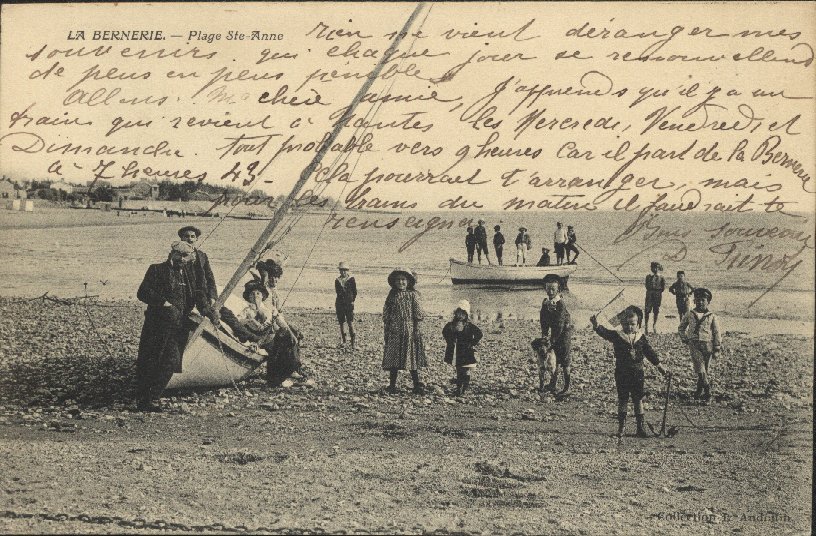 LA BERNERIE. — Plage Ste-Anne
rien ne vient déranger mes
souvenirs qui chaque jour se ressouvellend
de peus en peus pénible.
Allons ma chère Jamie, J'apprends qu'il y a un
train qui revient à Nantes les Mercredi, Vendredi et
Dimanche. Tout probable vers 9 heures car il part de la Bernerie
à 7 heures 43 - Cela pourrait t'arranger, mais
pour les trains du matin il faudrait te
renseigner.
Bons souvenirs
D.
Collection F. Audouin